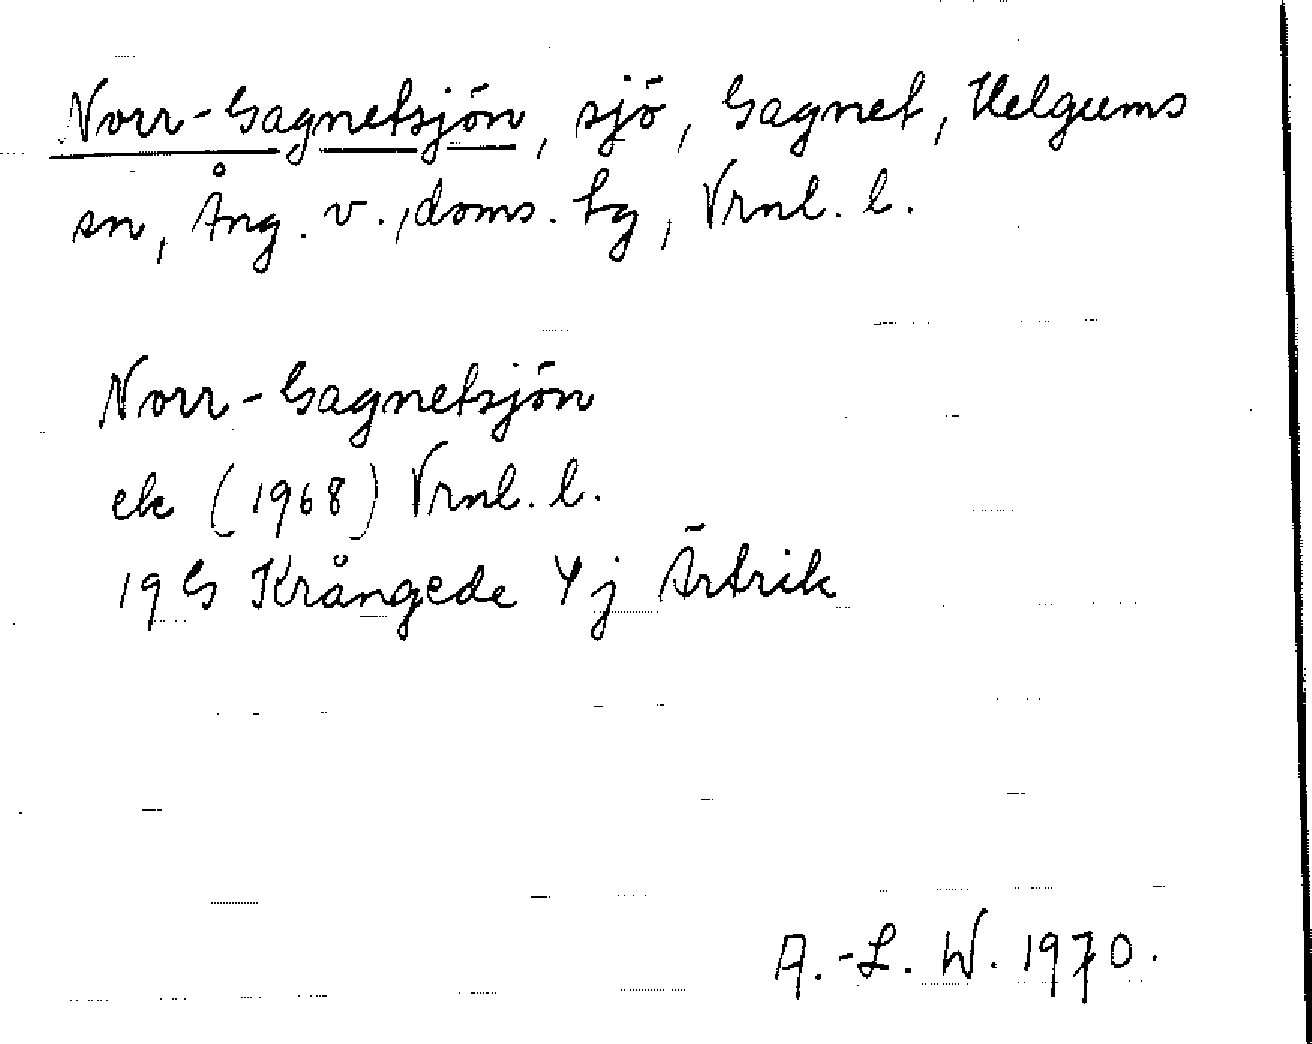 Norr-Gagnetsjön, sjö, Gagnet, Helgums
sn, Ång. v., doms. tg, Vrnl. l.
Norr-Gagnetsjön
ek (1968) Vrnl. l.
19 G Krångede 4 j Ärtrik
A.-L. W. 1970.